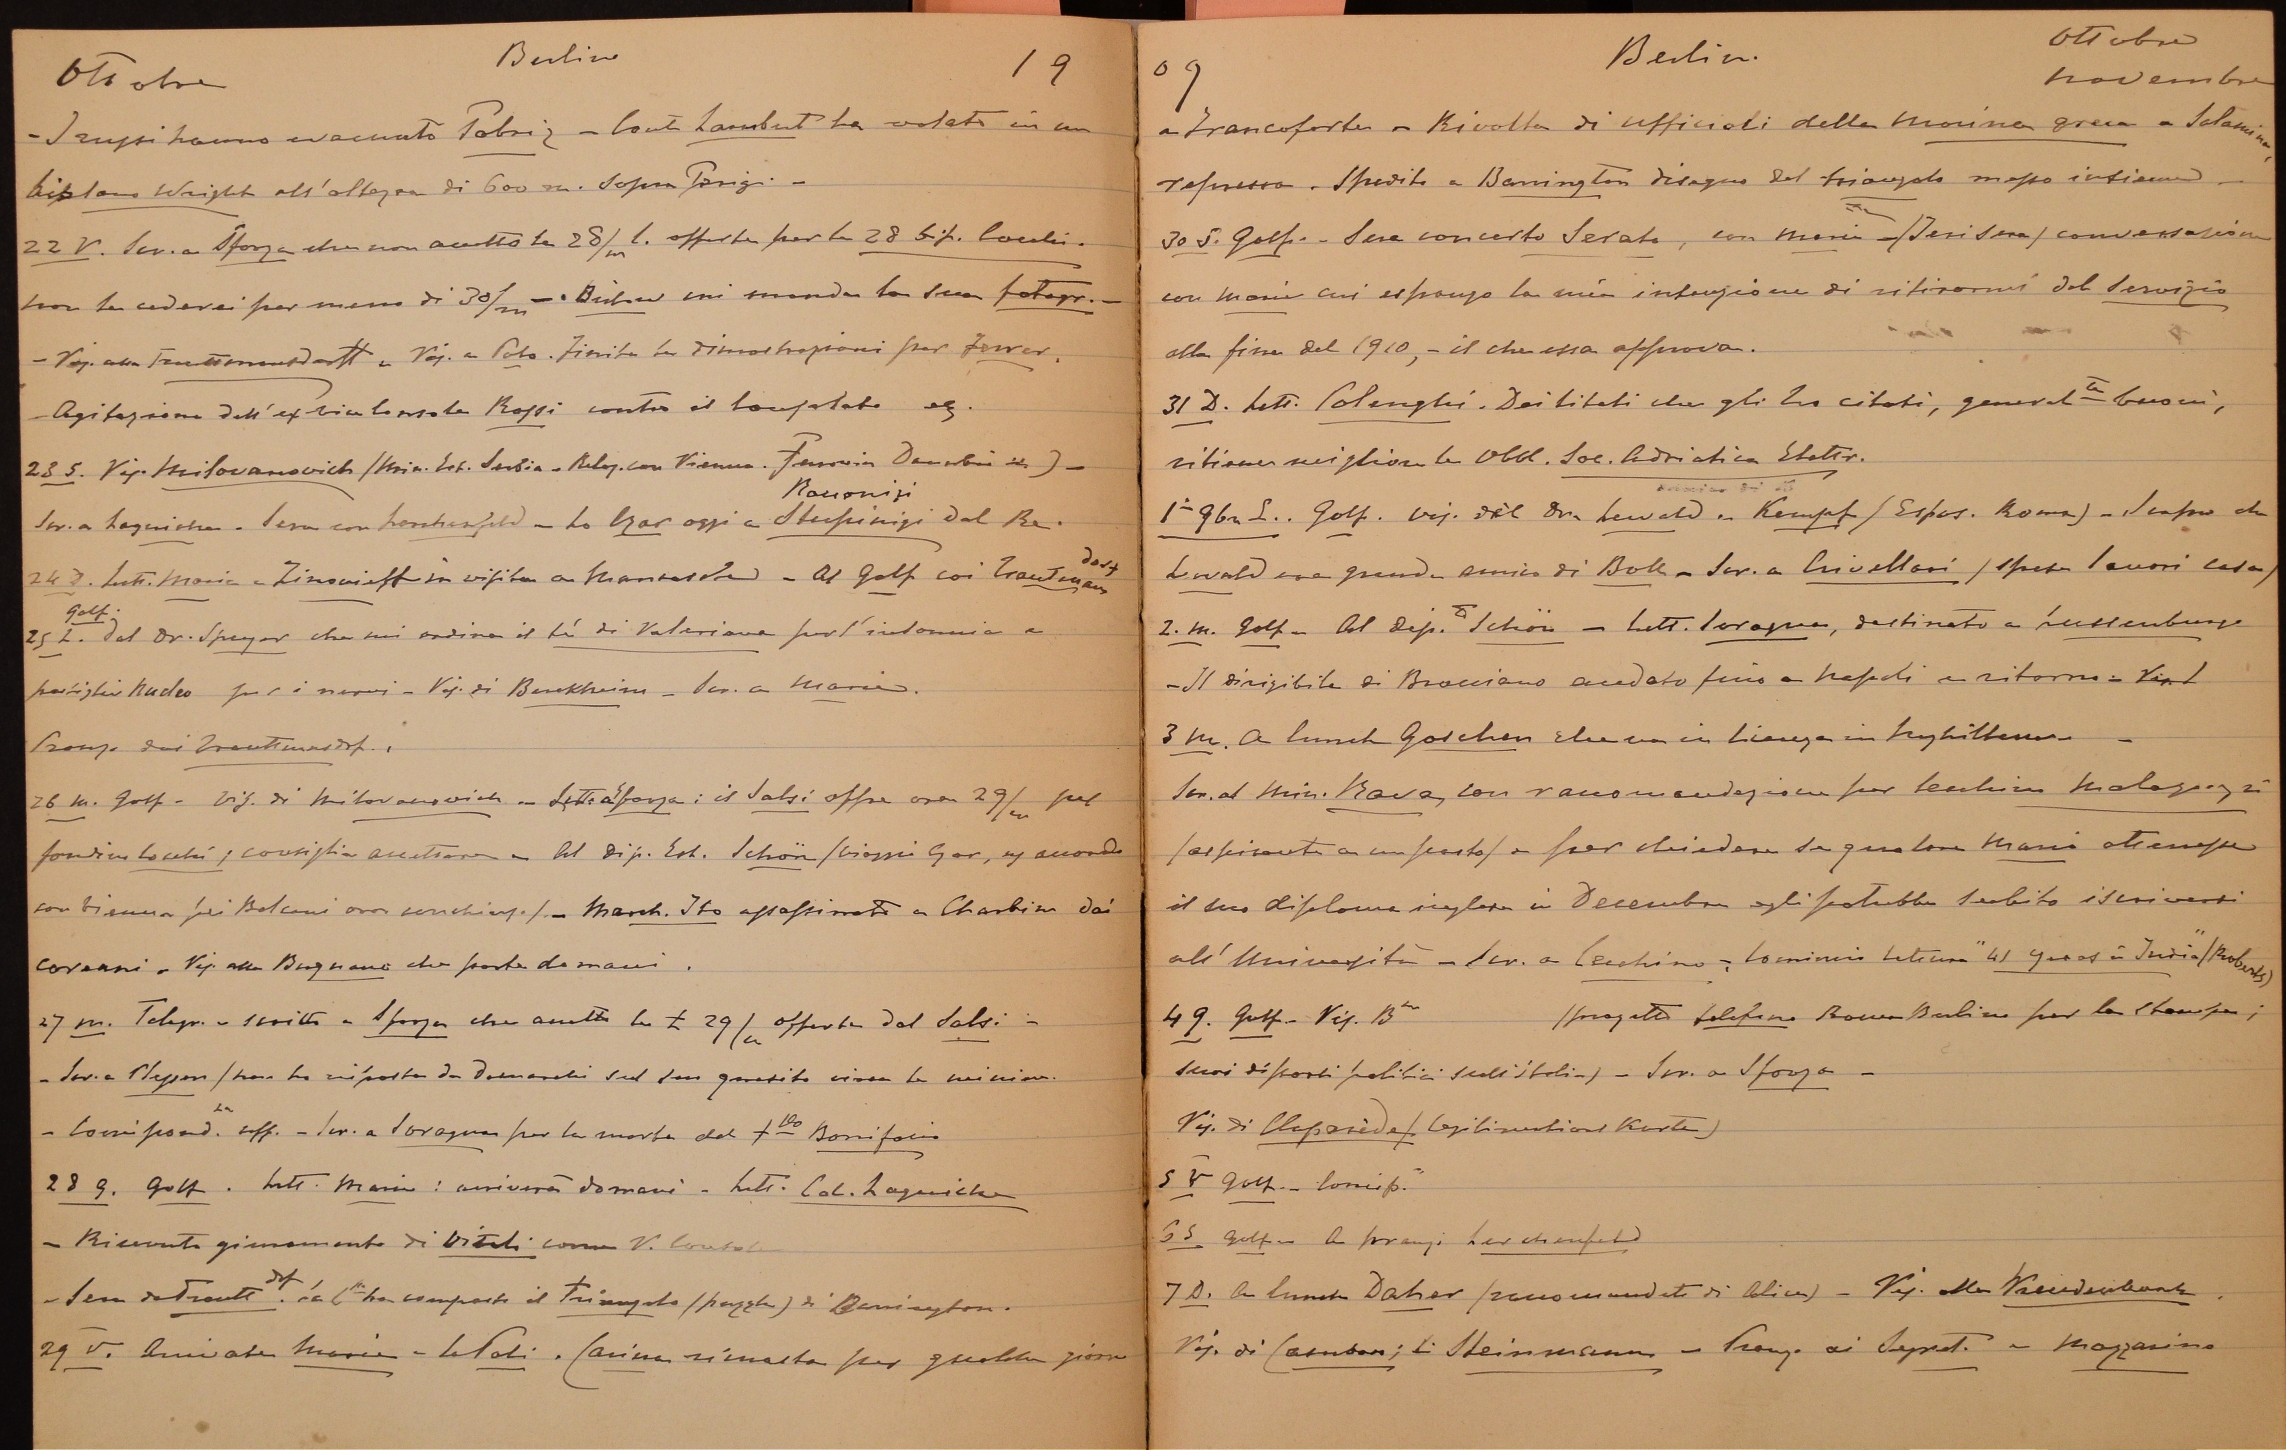 Ottobre Berlino 19
- I russi hanno evacuato Tabriz - Conte Lambert ha volato in un
biplano Wright all'altezza di 600 m. sopra Parigi. -
22 V. Scr. a Sforza che non accetto le 28/m l. offerte per le 28 bif. Cocchi.
non le cederei per meno di 30/m - . Bülow mi manda la sua fotogr. -
- Vis. alla Trauttmansdorff e Vis. a Polo. Finite le dimostrazioni per Ferrer.
- Agitazione dell'ex vice console Rossi contro il Consolato
23 S. Vis. Milovanovich (Min. Est. Serbia - Relaz. con Vienna. Ferrovia Danubio) -
Racconigi
Scr. a Laguiche. Sera con Lerchenfeld - Lo Czar oggi a Stupinigi dal Re.
24 D. Lett. Maria e Zinovieff in visita a - Al golf coi Trautmansdorf
golf.
25 L. Dal Dr. Speyer che mi ordina il té di Valeriana per l'insonnia e
pastiglie per i nervi - Vis. di Berckheim - Scr. a Maria.
Pranzo dai Trauttmansdrf.
26 M. Golf - Vis. di Milovanovich - Lett. a Sforza: il Salsi offre ora 29/m pel
fondino Cocchi; consiglia accettare - Al dip. Est. Schön (viaggio Czar, accordo
con Vienna pei Balcani ora conchiuso) - March. Ito assassinato a Charbin dai
coreani - Vis. alla Bugnano che parte domani.
27 M. Telegr. e scritto a Sforza che accetto le £ 29/m offerte dal Salsi -
- Scr. a Plessen (non ho risposta da Domarchi sul suo quesito circa le miniere.
- Corrispond.za uff. - Scr. a Soragna per la morte del Bonifacio
28 G. Golf. Lett. Maria: arriverà domani - Lett. Col. Laguiche
- Ricevuto giuramento di Vitali come V. Console
- Sera da Trautt.drf. ha composto il Triangolo (puzzle) di Barrington.
29 V. Arrivate Maria e la Poli. (Carina rimasta per qualche giorno
09 Berlin. Ottobre
novembre
a Francoforte - Rivolta di ufficiali della Marina greca a Salamina,
repressa. Spedito a Barrington disegno del triangolo messo insieme -
30 S. Golf. - Sera concerto Serato, con Maria - (Ieri sera) conversazione
con Maria cui espongo la mia intenzione di ritirarmi dal servizio
alla fine del 1910, - il che essa approva.
31 D. Lett. Polenghi. Dei titoli che gli ho citati, general.te buoni,
ritiene migliore le Obbl. Soc. Adriatica Elettr.
1° 9bre L. Golf. vis. del Dre Lewald e Kempf (Espos. Roma) - Seppi che
Lewald era grande amico di Bode - Scr. a Crivellari (spese lavori casa)
2. M. Golf - Al dip.o Schön - Lett. Soragna, destinato a Lussemburgo
- Il dirigibile di Bracciano andato fino a Napoli e ritorno - Vis. l
3 M. A lunch Goschen che va in licenza in Inghilterra -
Scr. al Min. Rava, con raccomandazione per Cecchino Malaguzzi
(aspirante a un posto) e per chiedere se qualora Mario ottenesse
il suo diploma inglese in Decembre egli potrebbe subito iscriversi
all'Università - Scr. a Cecchino - Cominciò lettura "41 years in India" (Roberts)
4 G. Golf - Vis. Bne (progetto telefono Roma Berlino per la stampa;
suoi rapporti politici sull'Italia) - Scr. a Sforza -
Vis. di Claparède (Legitimations Karte)
5 V Golf - Corrisp.
6 S golf - A pranzo Lerchenfeld
7 D. A lunch Daher (raccomandato di Alice) - Vis. alla Vredenburch.
Vis. di Cambon; di Steinmann - Pranzo ai Segret. e Mazzarino